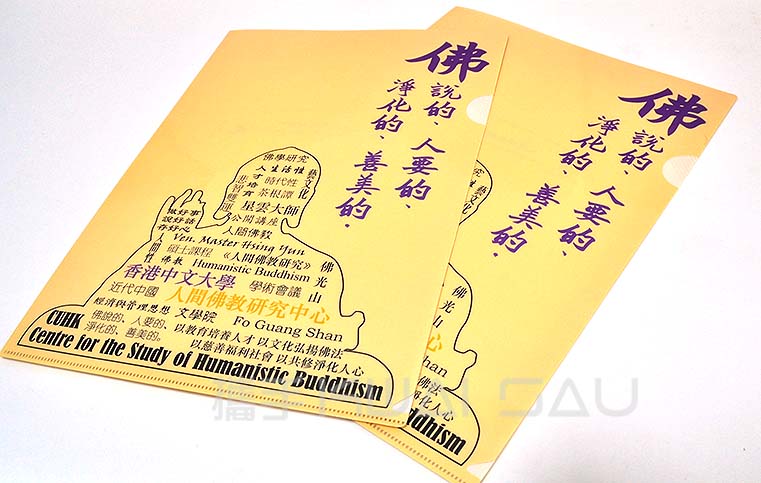 佛
說的、人要的、
淨化的、善美的.
佛學研究
人生活性
藝文化
人才培育
時代性
悲智雙運
茶根譚
星雲大師
公開講座
人間佛教
做好事
說好話
存好心
Ven. Master Hsing Yun
碩士課程
《人間佛教研究》
佛教 Humanistic Buddhism
佛光山
香港中文大學 學術會議
近代中國 人間佛教研究中心
經濟與管理思想 文學院 Fo Guang Shan
佛說的、人要的、
淨化的、善美的。
以教育培養人才 以文化弘揚佛法
以慈善福利社會 以共修淨化人心
CUHK
Centre for the Study of Humanistic Buddhism
佛
說的、人要的、
淨化的、善美的.
藝文化
佛光山
Shan
佛法
淨化人心
ddhism
HUAI SAU